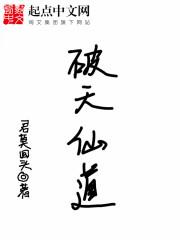 起点中文网
阅文集团旗下网站
破天仙道
君莫回头 著